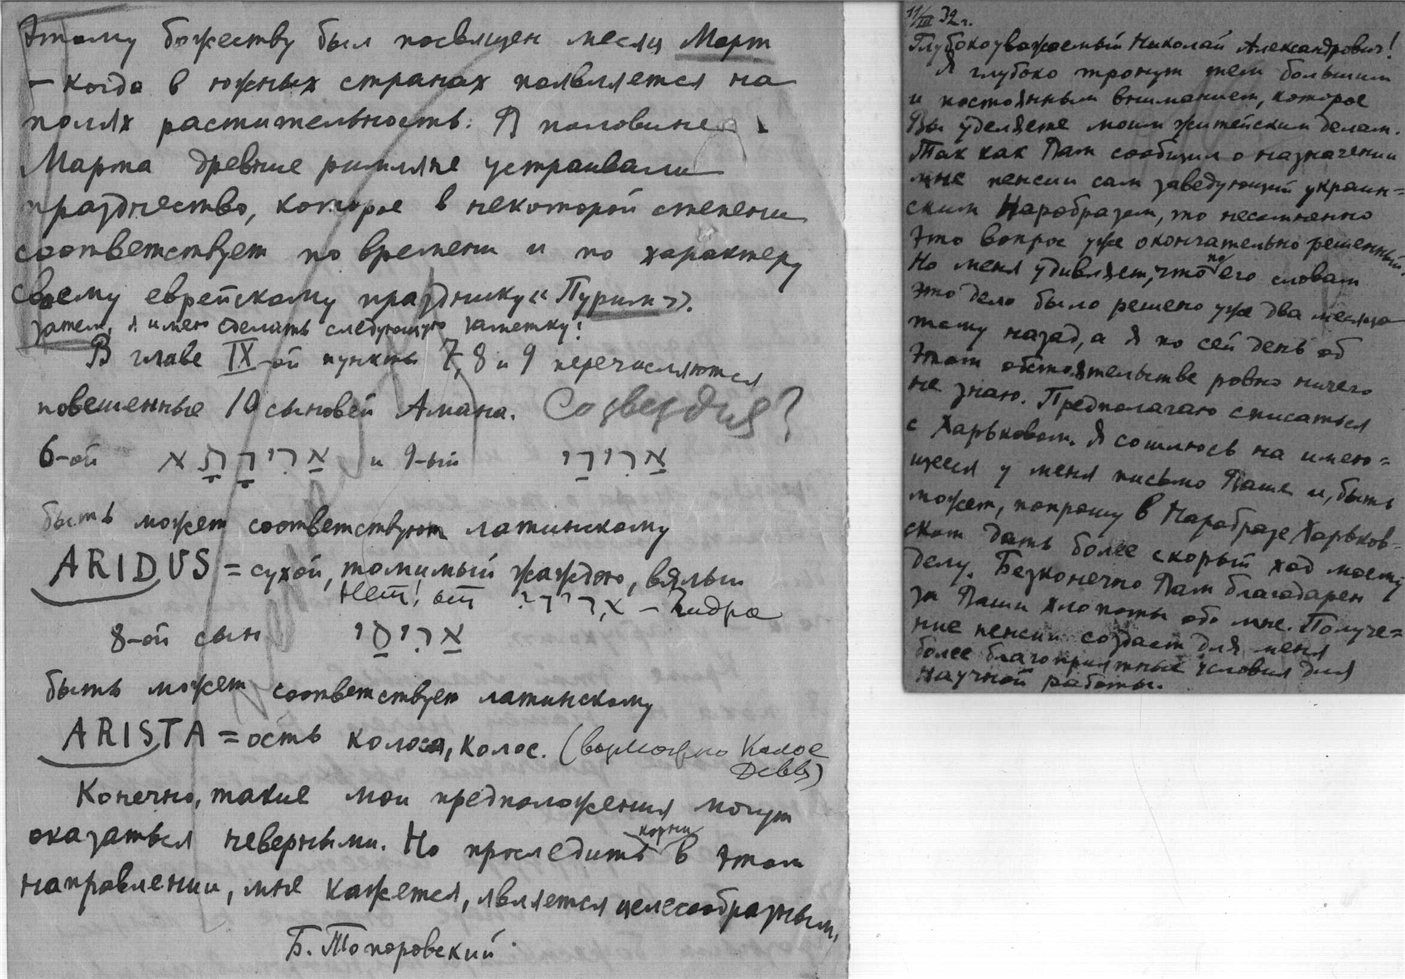 Этому божеству был посвящен месяц Март
– когда в южных странах появляется на
полях растительность. В половине
Марта древние римляне устраивали
празднество, которое в некоторой степени
соответствует по времени и по характеру
своему еврейскому празднику "Пурим".
Затем, я имею сделать следующую заметку:
В главе IX-ой пункты 7, 8 и 9 перечисляются
повешенные 10 сыновей Амана. Созвездия?
6-ой אֲרִידָתָא и 9-ый אֲרִידַי
быть может соответствуют латинскому
ARIDUS = сухой, томимый жаждою, вялый
Нет! от ארידי – Гидра
8-ой сын אֲרִיסַי
быть может соответствует латинскому
ARISTA = ость колоса, колос. (возможно Колос
Девы)
Конечно, такие мои предположения могут
оказаться неверными. Но проследить корни в этом
направлении, мне кажется, является целесообразным.
Б. Топоровский.
11/III 32 г.
Глубокоуважаемый Николай Александрович!
Я глубоко тронут тем большим
и постоянным вниманием, которое
Вы уделяете моим житейским делам.
Так как Вам сообщил о назначении
мне пенсии сам заведующий украин=
ским Наробразом, то несомненно
это вопрос уже окончательно решенный.
Но меня удивляет, что по его словам
это дело было решено уже два месяца
тому назад, а я по сей день об
этом обстоятельстве ровно ничего
не знаю. Предполагаю списаться
с Харьковом. Я сошлюсь на имею=
щееся у меня письмо Ваше и, быть
может, попрошу в Наробразе Харьков=
ском дать более скорый ход моему
делу. Безконечно Вам благодарен
за Ваши хлопоты обо мне. Получе=
ние пенсии создаст для меня
более благоприятные условия для
научной работы.